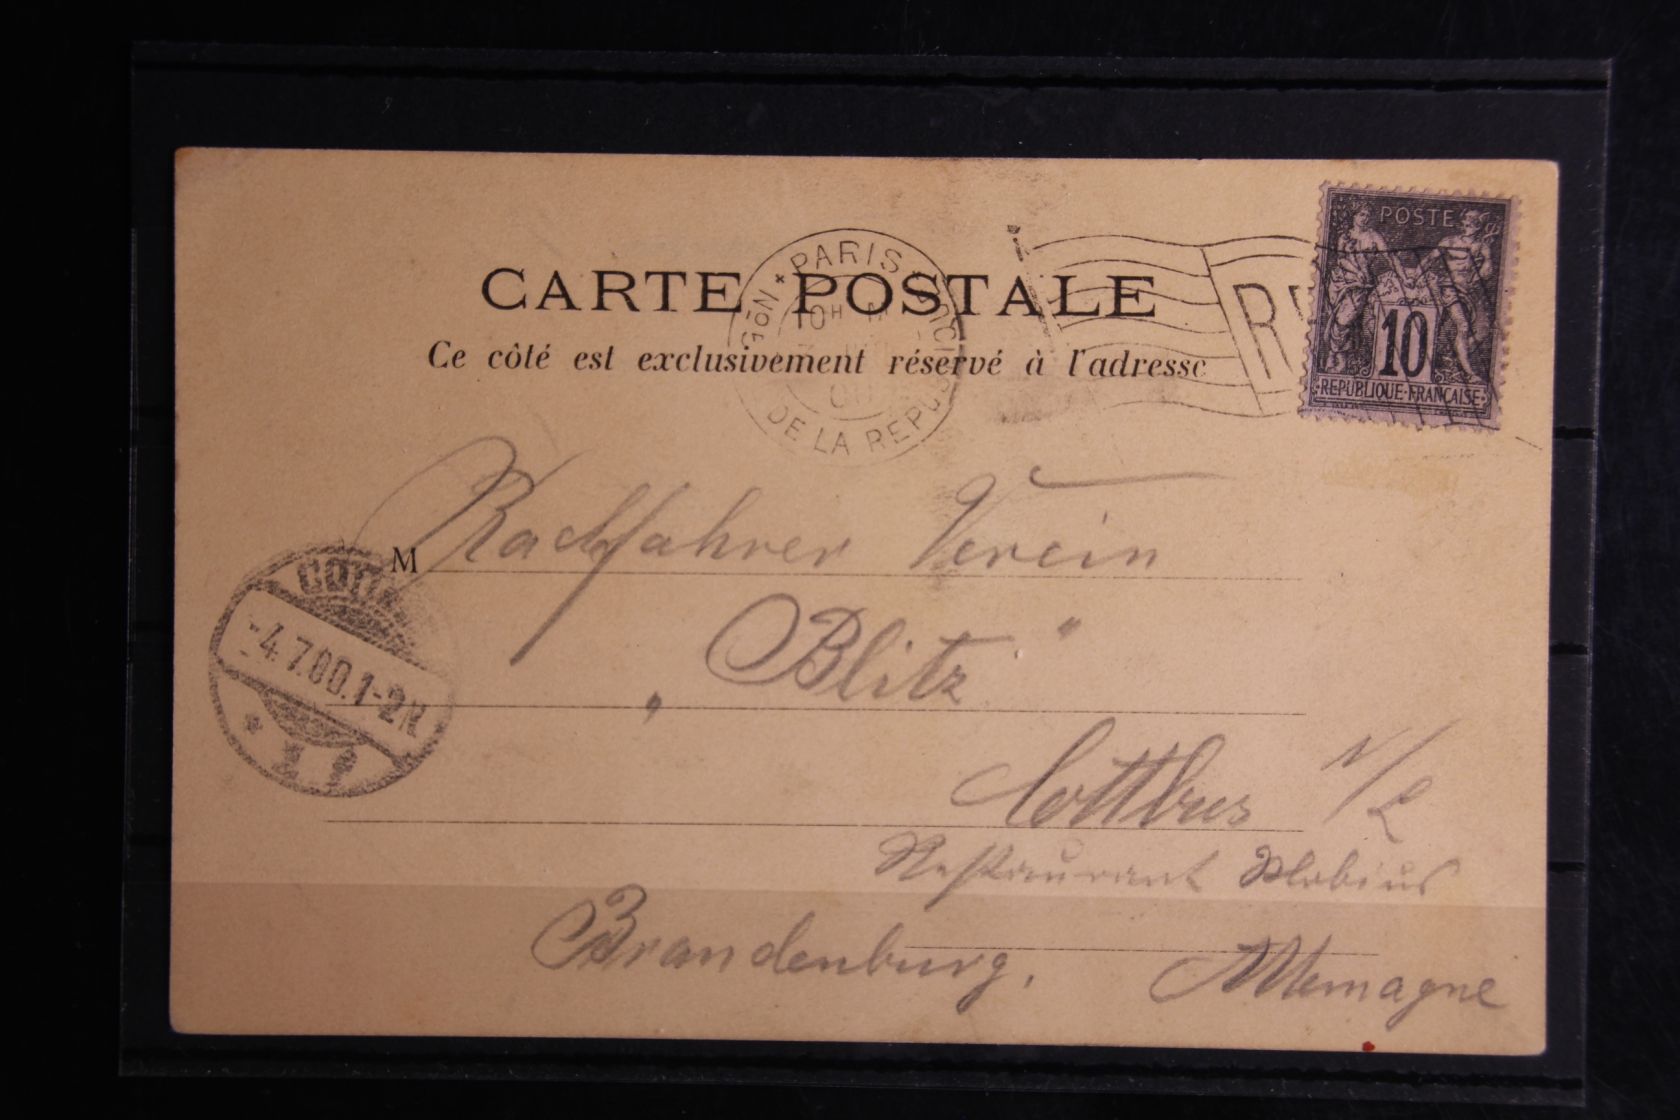 CARTE POSTALE
Ce côté est exclusivement réservé à l'adresse
PARIS
10H
DE LA REPU
RF
POSTE
10
REPUBLIQUE FRANÇAISE
M Radfahrer Verein
„Blitz"
Cottbus N/L
Restaurant Mobius
Brandenburg. Allemagne
COTT
-4.7.00.1-2N